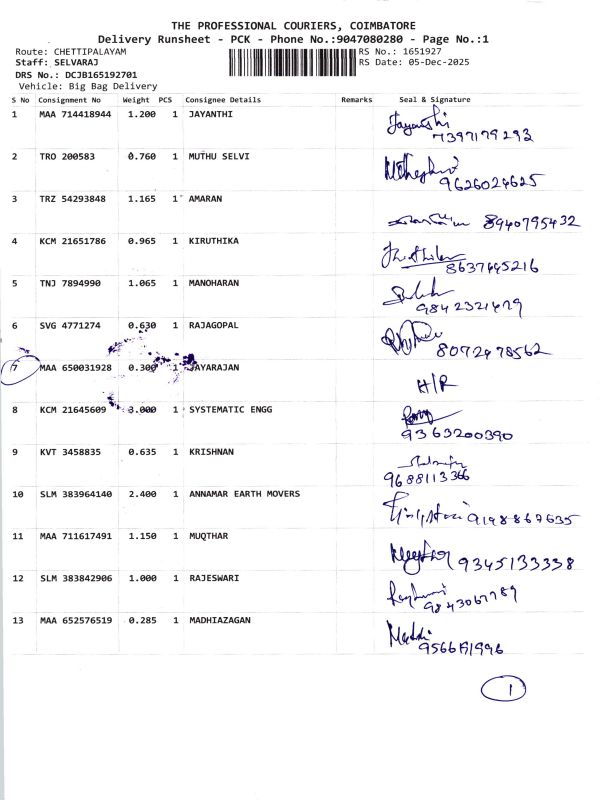 THE PROFESSIONAL COURIERS, COIMBATORE
Delivery Runsheet - PCK - Phone No.:9047080280 - Page No.:1
Route: CHETTIPALAYAM RS No.: 1651927
Staff: SELVARAJ RS Date: 05-Dec-2025
DRS No.: DCJB165192701
Vehicle: Big Bag Delivery
S No Consignment No Weight PCS Consignee Details Remarks Seal & Signature
1 MAA 714418944 1.200 1 JAYANTHI
7397179293
2 TRO 200583 0.760 1 MUTHU SELVI
9626024625
3 TRZ 54293848 1.165 1 AMARAN
8940795432
4 KCM 21651786 0.965 1 KIRUTHIKA
8637445216
5 TNJ 7894990 1.065 1 MANOHARAN
9842321479
6 SVG 4771274 0.630 1 RAJAGOPAL
8072478562
7 MAA 650031928 0.300 1 JAYARAJAN
H/R
8 KCM 21645609 3.000 1 SYSTEMATIC ENGG
9363200390
9 KVT 3458835 0.635 1 KRISHNAN
9688113366
10 SLM 383964140 2.400 1 ANNAMAR EARTH MOVERS
11 MAA 711617491 1.150 1 MUQTHAR
9345133338
12 SLM 383842906 1.000 1 RAJESWARI
13 MAA 652576519 0.285 1 MADHIAZAGAN
1